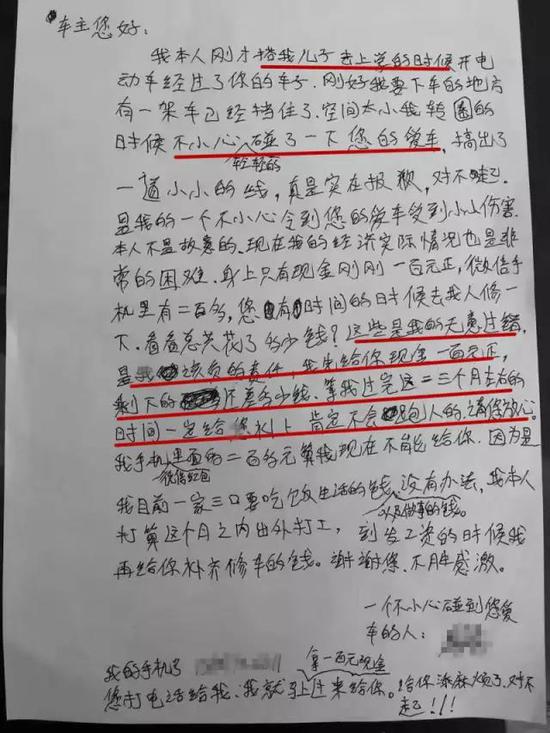 车主您好:
我本人刚才搭我儿子去上学的时候开电
动车经过了你的车子.刚好我要下车的地方
有一架车已经挡住了.空间太小我转圈的
时候不小心碰了一下您的爱车,搞出了
轻轻的
一道小小的线,真是实在报歉,对不起.
是我的一个不小心令到您的爱车受到小小伤害.
本人不是故意的.现在我的经济实际情况也是非
常的困难.身上只有现金刚刚一百元正,微信手
机里有二百多,您有时间的时候去找人修一
下.看看总共花了多少钱?这些是我的无意过错,
是我该负的责任,我先给你现金一百元正,
剩下的还差多少钱.等我过完这二三个月左右的
时间一定给您补上 肯定不会跑人的.请你放心。
我手机里面的二百多元算我现在不能给你.因为是
微信红包
我目前一家三口要吃饭生活的钱,没有办法,我本人
以及做事的钱。
打算这个月之内出外打工,到发工资的时候我
再给你补齐修车的钱。谢谢您.不胜感激。
一个不小心碰到您爱
车的人:
我的手机号
拿一百元现金
您打电话给我.我就马上过来给你。给你添麻烦了.对不
起!!!